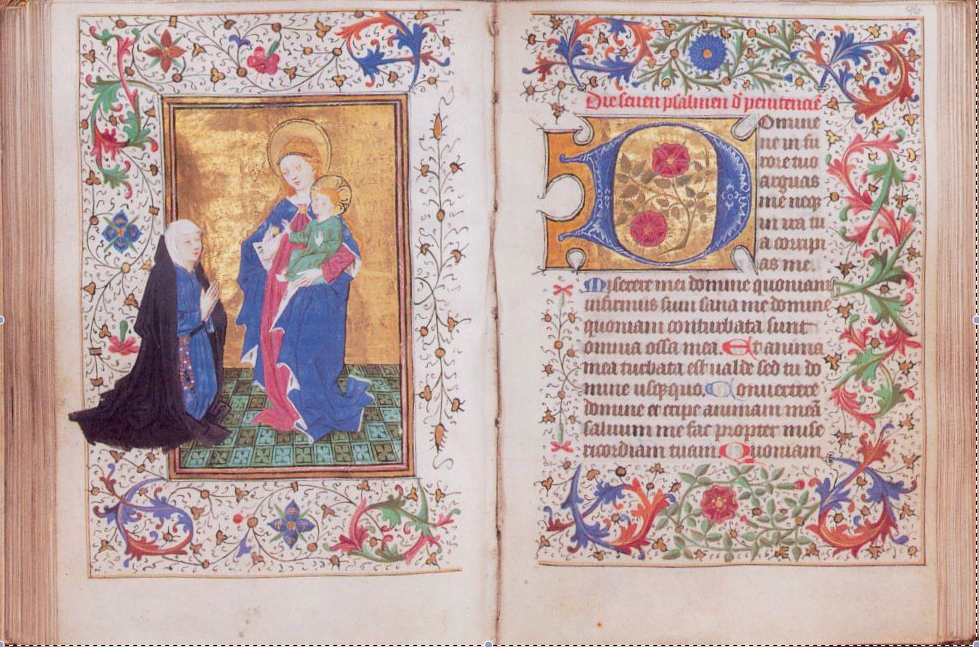 96
Die seuen psalmen d' penitencie
Domine
ne in fu
rore tuo
arguas
me neqꝫ
in ira tu
a corripi
as me.
Miserere mei domine quoniam
infirmus sum sana me domine
quoniam conturbata sunt
omnia ossa mea. Et anima
mea turbata est ualde sed tu do
mine usqꝫquo. Conuertere
domine et eripe animam meā
saluum me fac propter mise
ricordiam tuam. Quoniam